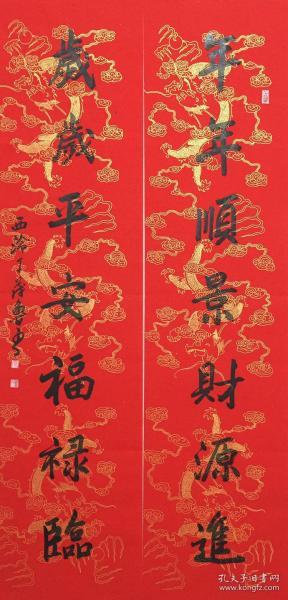 年年順景財源進
歲歲平安福禄臨
孔夫子旧书网
www.kongfz.com